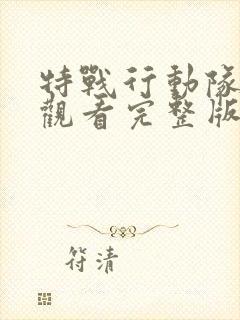 特戰行動隊
觀看完整版
符清